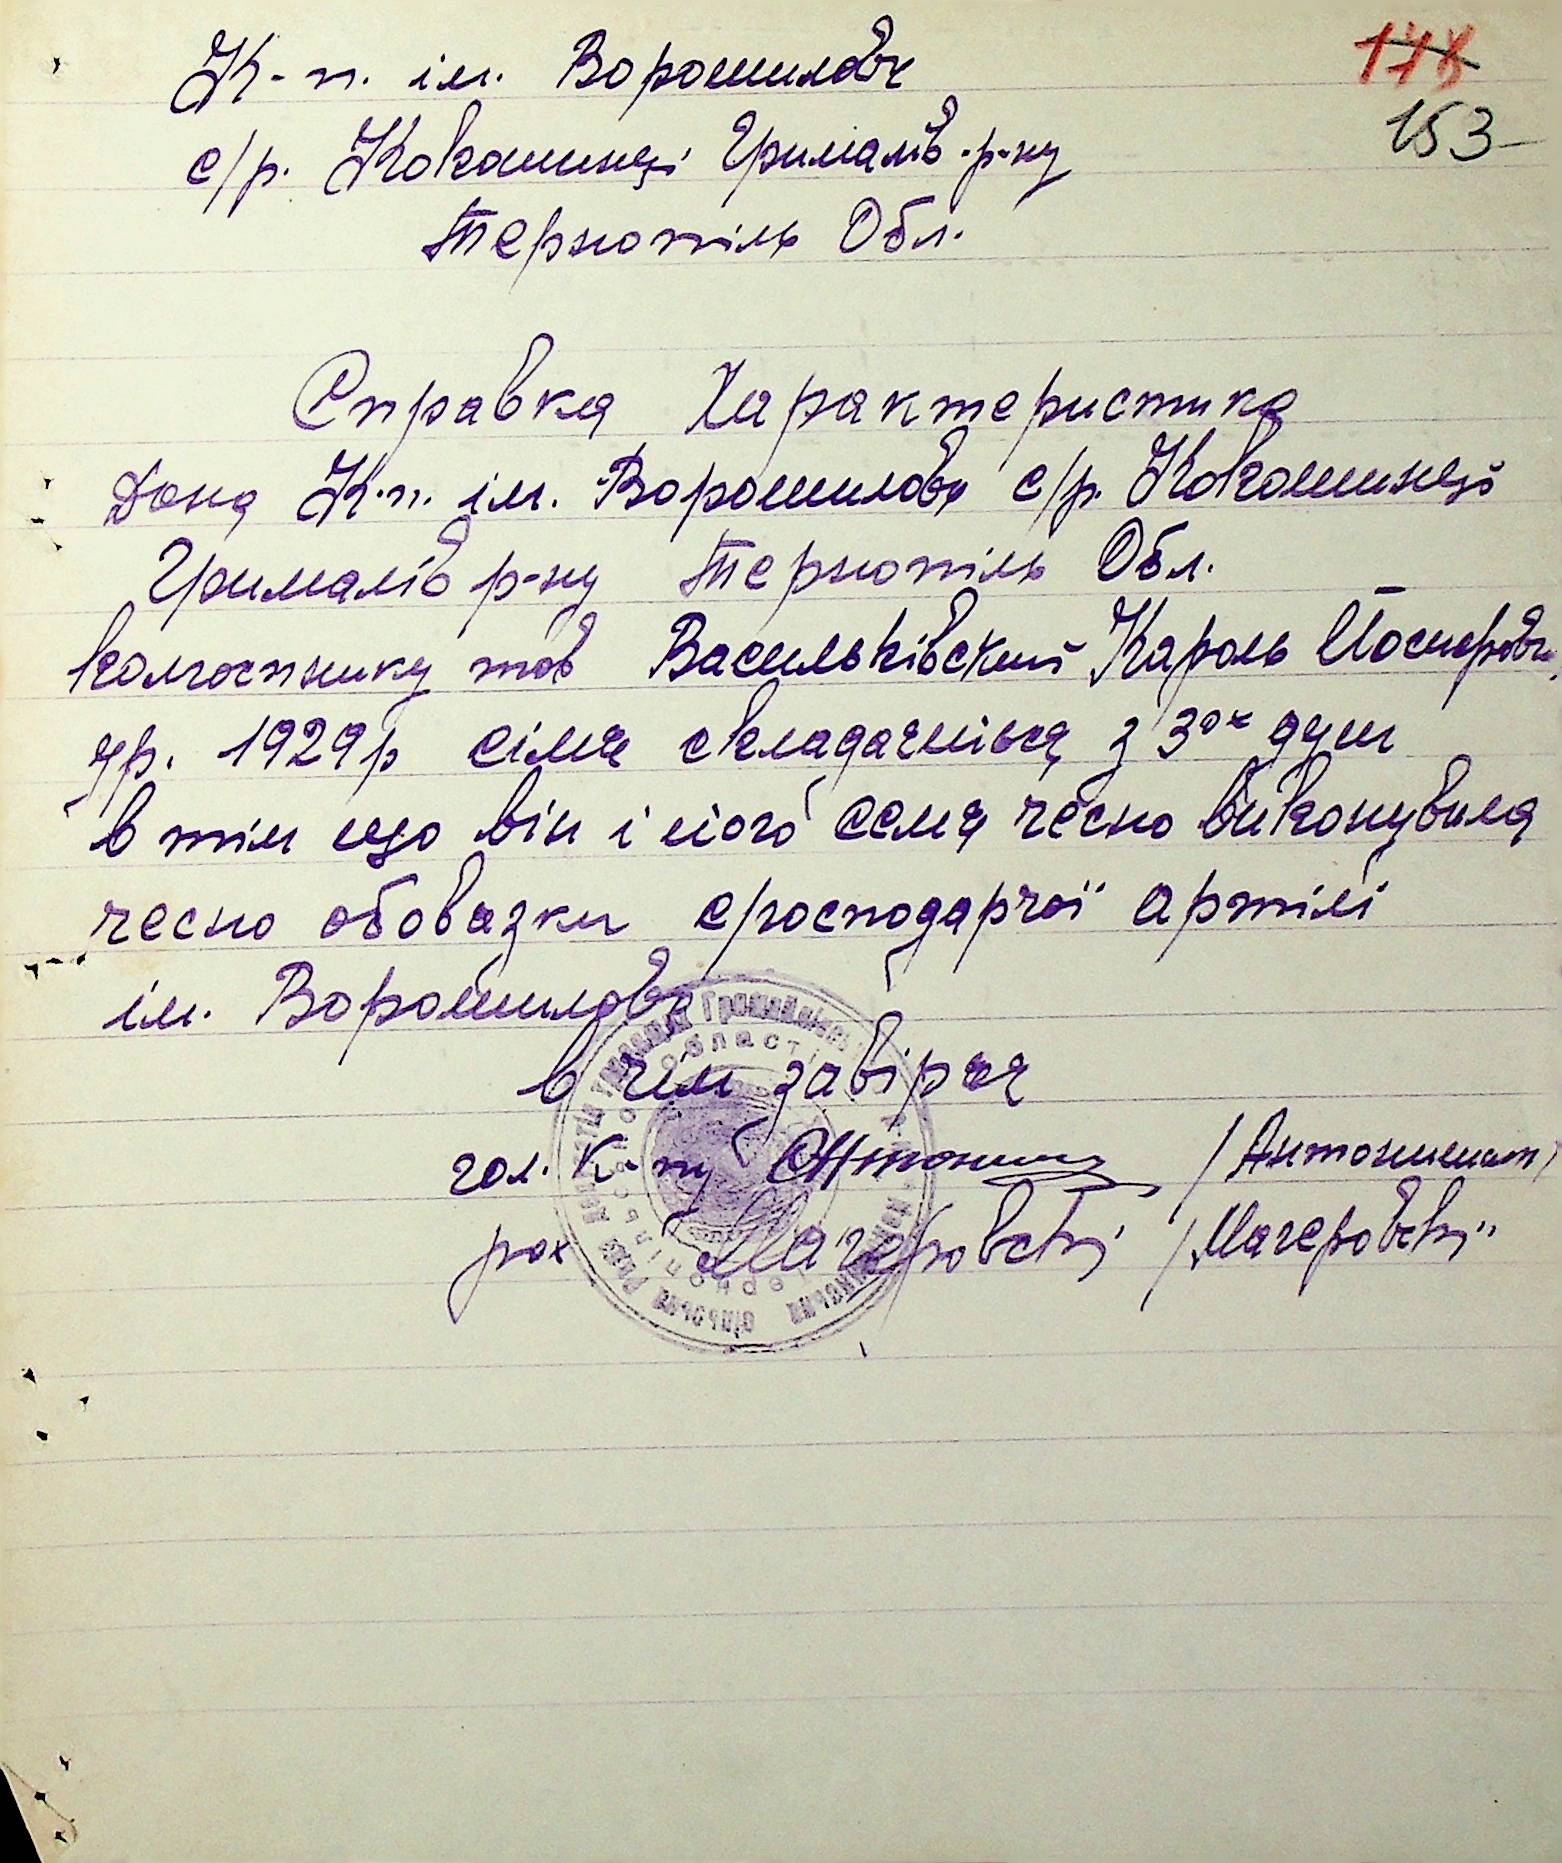 178
153
К-п. ім. Ворошилова
с/р. Кокошинці Грималів р-ну
Тернопіль Обл.
Справка Характеристика
Дана К.п. ім. Ворошилова с/р. Кокошинці
Грималів р-ну Тернопіль Обл.
колгоспнику тов Васильківский Кароль Йосифович
ур. 1929р сімя складається з 3ох душ
в тім що він і його семя чесно виконувила
чесно обовазки сгосподарчої артілі
ім. Ворошилова
в чім завіряєя
гол. к-пу Антонишин /Антонишин/
рах Магеровскі /Магеровскі
області